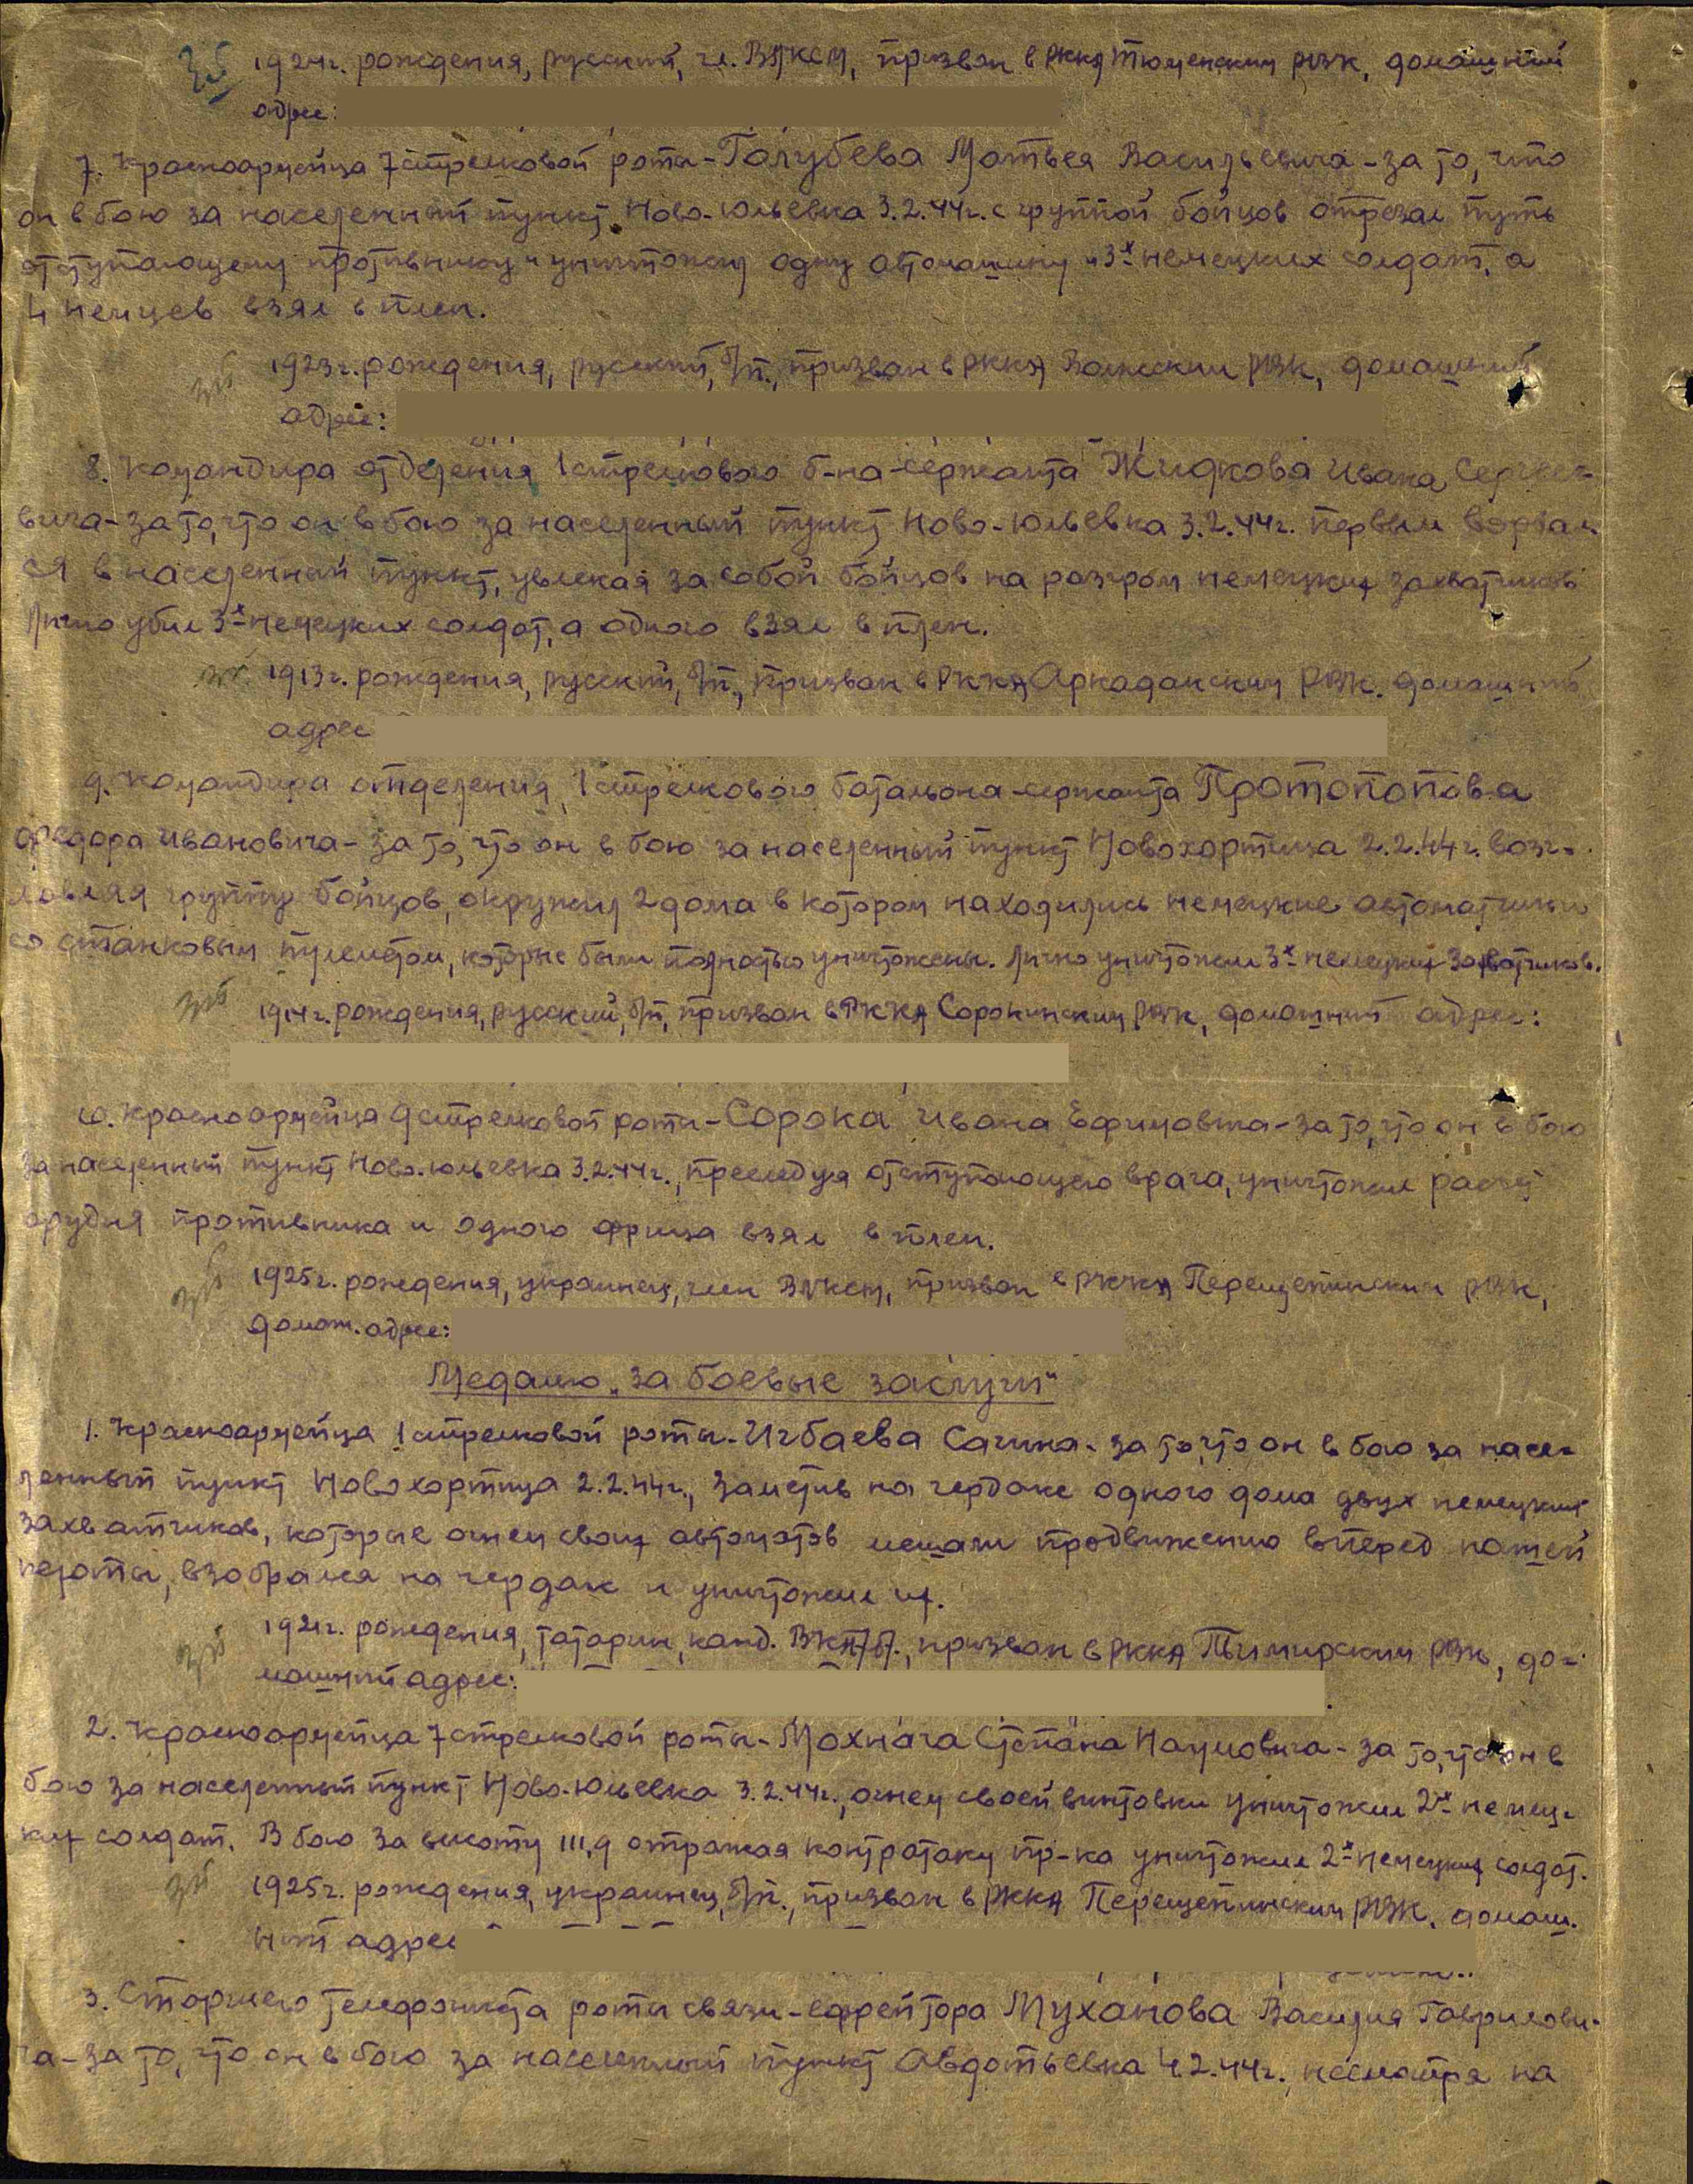 1924г. рождения, русский, чл. ВЛКСМ, призван в РККА Тюменским РВК, домашний
адрес:
7. Красноармейца 7 стрелковой роты - Голубева Матвея Васильевича - за то, что
он в бою за населенный пункт Ново-Юльевка 3.2.44г. с группой бойцов отрезал путь
отступающему противнику и уничтожил одну автомашину и 3х немецких солдат, а
4 немцев взял в плен.
1923г. рождения, русский, б/п., призван в РККА РВК, домашний
адрес:
8. Командира отделения 1 стрелкового б-на - сержанта Жидкова Ивана Сергее-
вича - за то, что он в бою за населенный пункт Ново-Юльевка 3.2.44г. первым ворвал-
ся в населенный пункт, увлекая за собой бойцов на разгром немецких захватчиков
Лично убил 3х немецких солдат, а одного взял в плен.
1913г. рождения, русский, б/п., призван в РККА Аркадакским РВК. домашний
адрес
9. Командира отделения 1 стрелкового батальона - сержанта Протопопова
Федора Ивановича - за то, что он в бою за населенный пункт Новохортица 2.2.44г. возг-
лавляя группу бойцов, окружил 2 дома в котором находились немецкие автоматчики
со станковым пулеметом, которые были полностью уничтожены. Лично уничтожил 3х немецких захватчиков.
1914г. рождения, русский, б/п, призван в РККА Сорокинским РВК, домашний адрес:
10. Красноармейца 9 стрелковой роты - Сорока Ивана Ефимовича - за то, что он в бою
за населенный пункт Ново-Юльевка 3.2.44г., преследуя отступающего врага, уничтожил расчет
орудия противника и одного фрица взял в плен.
1925г. рождения, украинец, член ВЛКСМ, призван в РККА Перещепинским РВК,
домаш. адрес:
Медалью „За боевые заслуги"
1. Красноармейца 1 стрелковой роты - Игбаева - за то, что он в бою за насе-
ленный пункт Новохортица 2.2.44г., заметив на чердаке одного дома двух немецких
захватчиков, которые огнем своих автоматов мешали продвижению вперед нашей
пехоты, взобрался на чердак и уничтожил их.
рождения, татарин, канд. ВКП/б/., призван в РККА РВК, до-
машний адрес:
2. Красноармейца 7 стрелковой роты - Мохнача Степана Наумовича - за то, что он в
бою за населенный пункт Ново-Юльевка 3.2.44г., огнем своей винтовки уничтожил 2х немец-
ких солдат. В бою за высоту 111,9 отражая контратаку пр-ка уничтожил 2х немецких солдат.
1925г. рождения, украинец, б/п., призван в РККА Перещепинским РВК. домаш-
ний адрес
3. Старшего телефониста роты связи - ефрейтора Муханова Василия Гаврилови-
ча - за то, что он в бою за населенный пункт Авдотьевка 4.2.44г., несмотря на